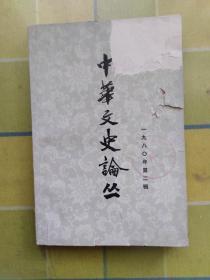 中華文史論丛
一九八〇年第二辑